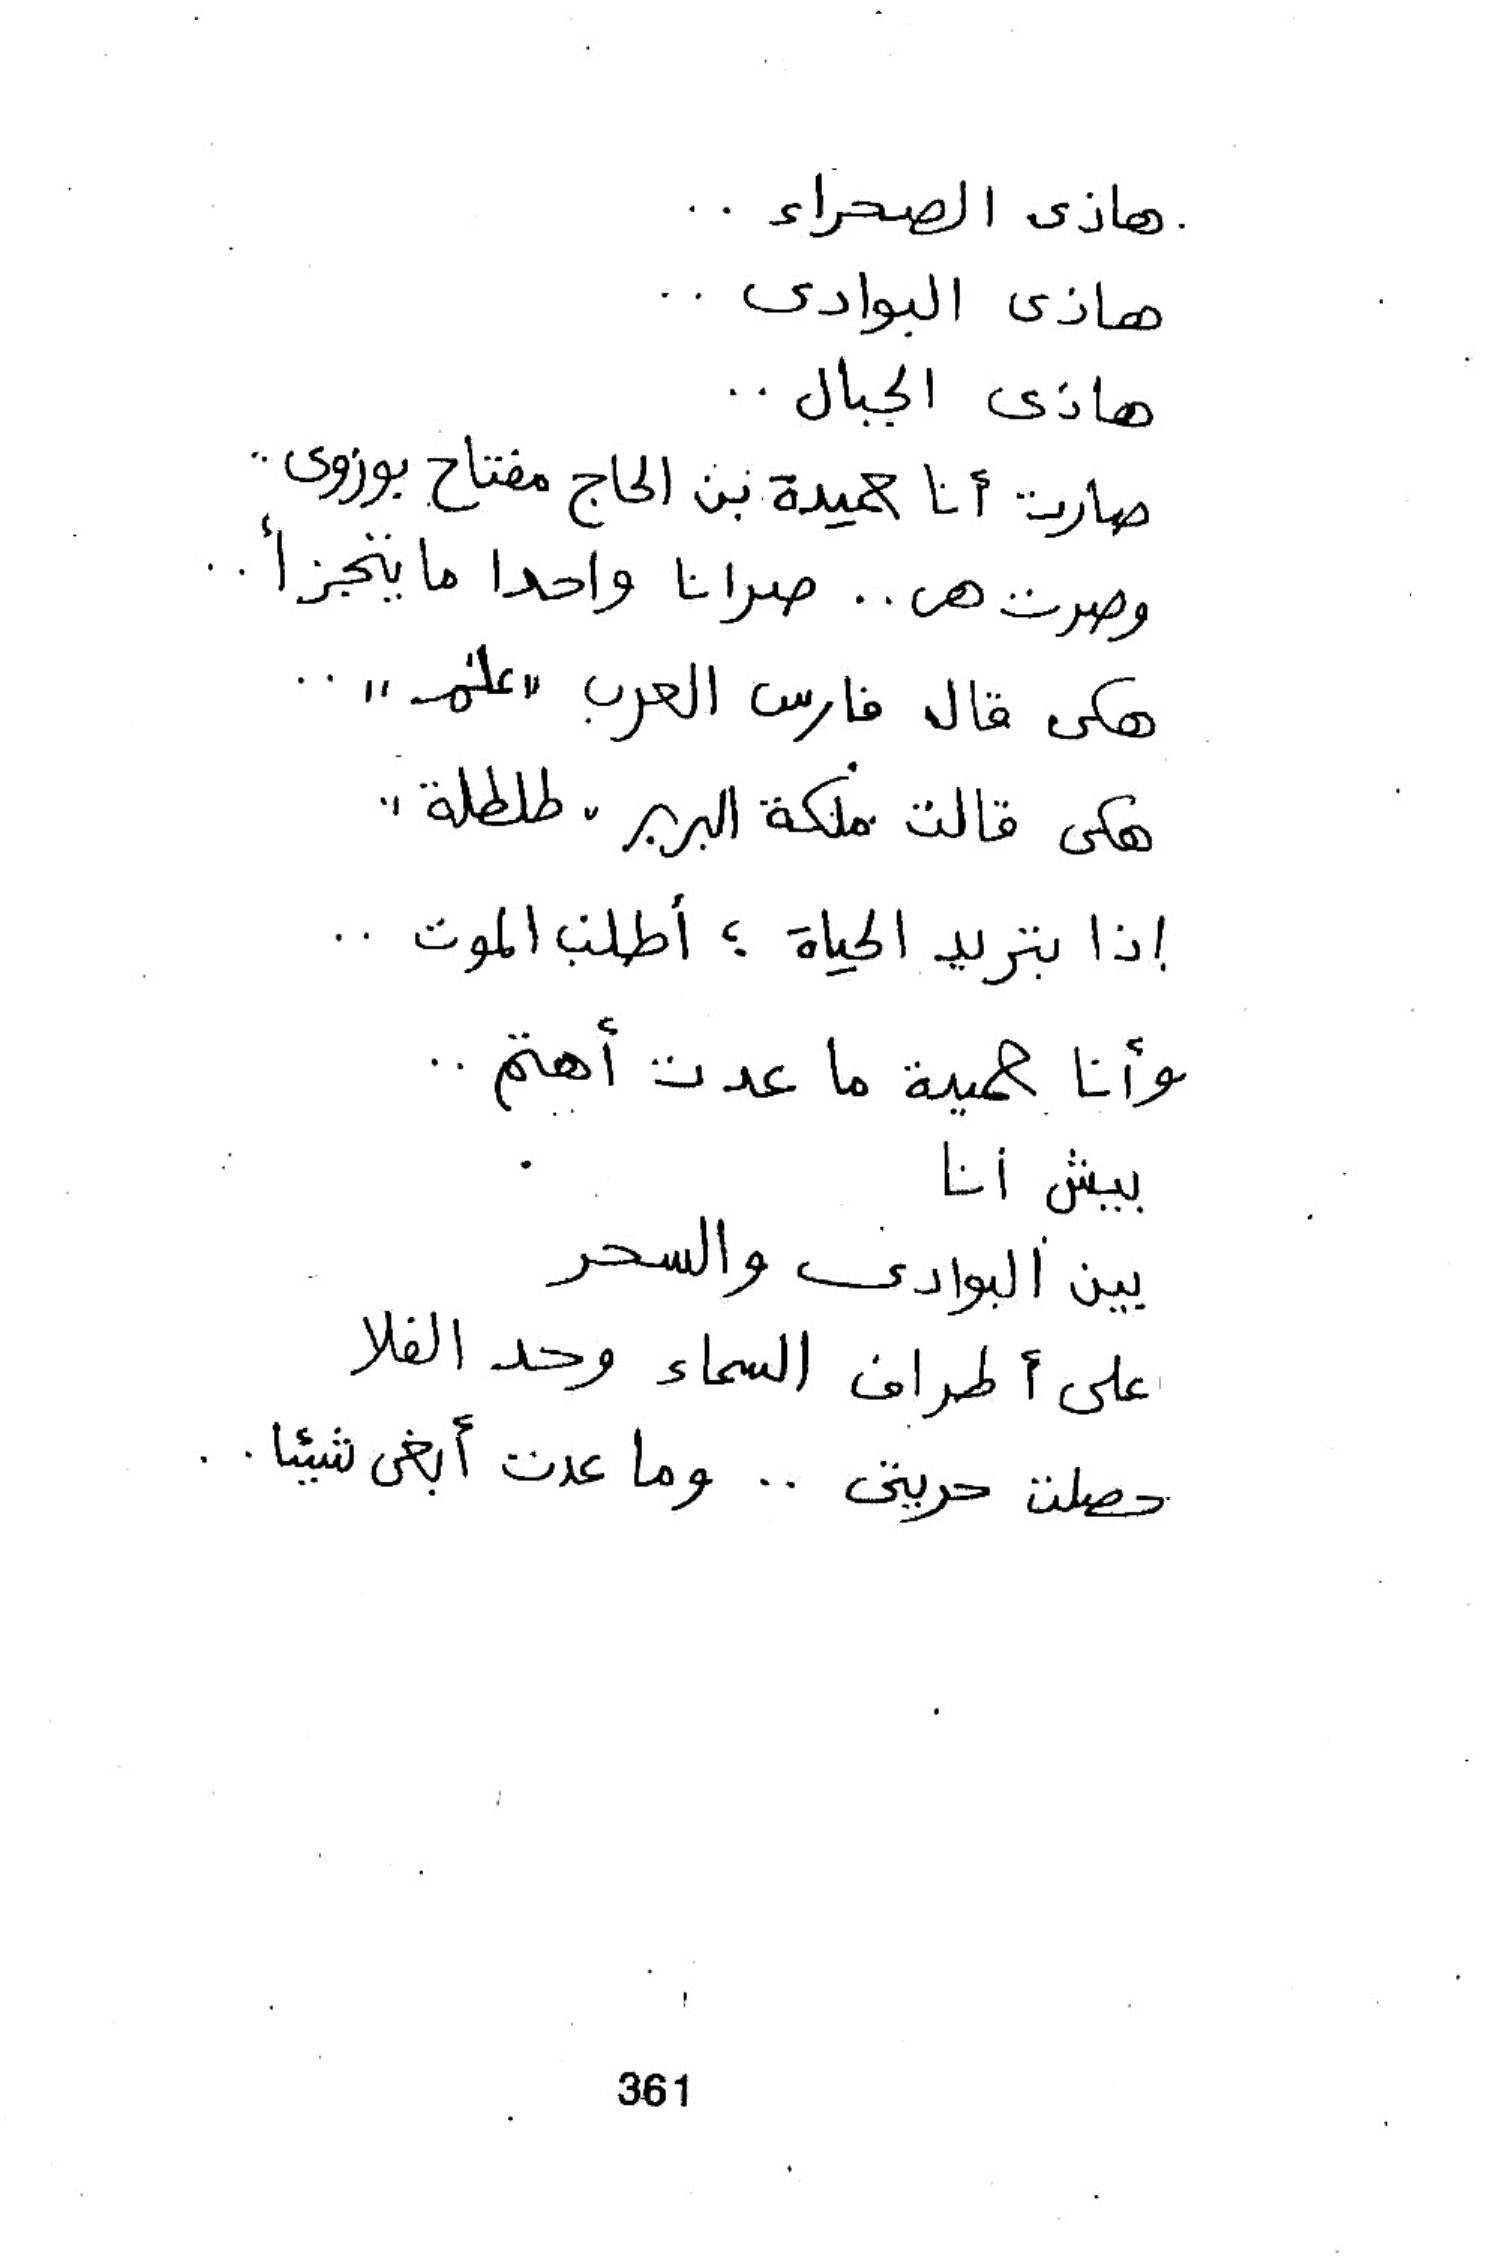 هاذى الصحراء ..
هاذى البوادى ..
هاذى الجبال ..
صارت أنا حميدة بن الحاج مفتاح بوزوى ..
وصرت هى .. صرانا واحدا ما يتجزأ ..
هكى قال فارس العرب " " ..
هكى قالت ملكة البربر " طلطلة "
إذا بتريد الحياة ؛ أطلب الموت ..
وأنا حميدة ما عدت أهتم ..
بيش انا
بين البوادى والسحر
على أطراف السماء وحد الفلا
حصلت حريتى .. وما عدت أبغى شيئا ..
361